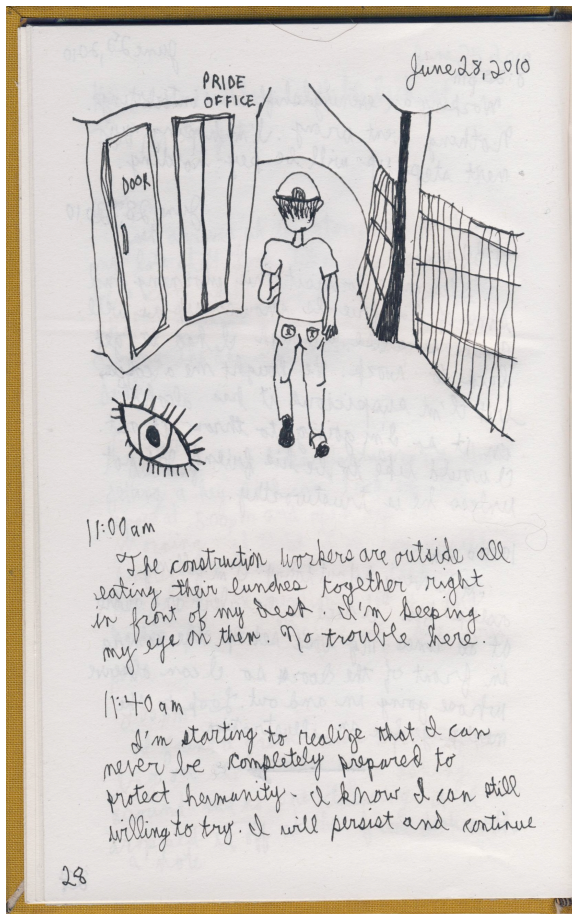 June 28, 2010
PRIDE
OFFICE
DOOR
11:00am
The construction workers are outside all
eating their lunches together right
in front of my desk. I'm keeping
my eye on them. No trouble here.
11:40am
I'm starting to realize that I can
never be completely prepared to
protect humanity. I know I can still
willing to try. I will persist and continue
28